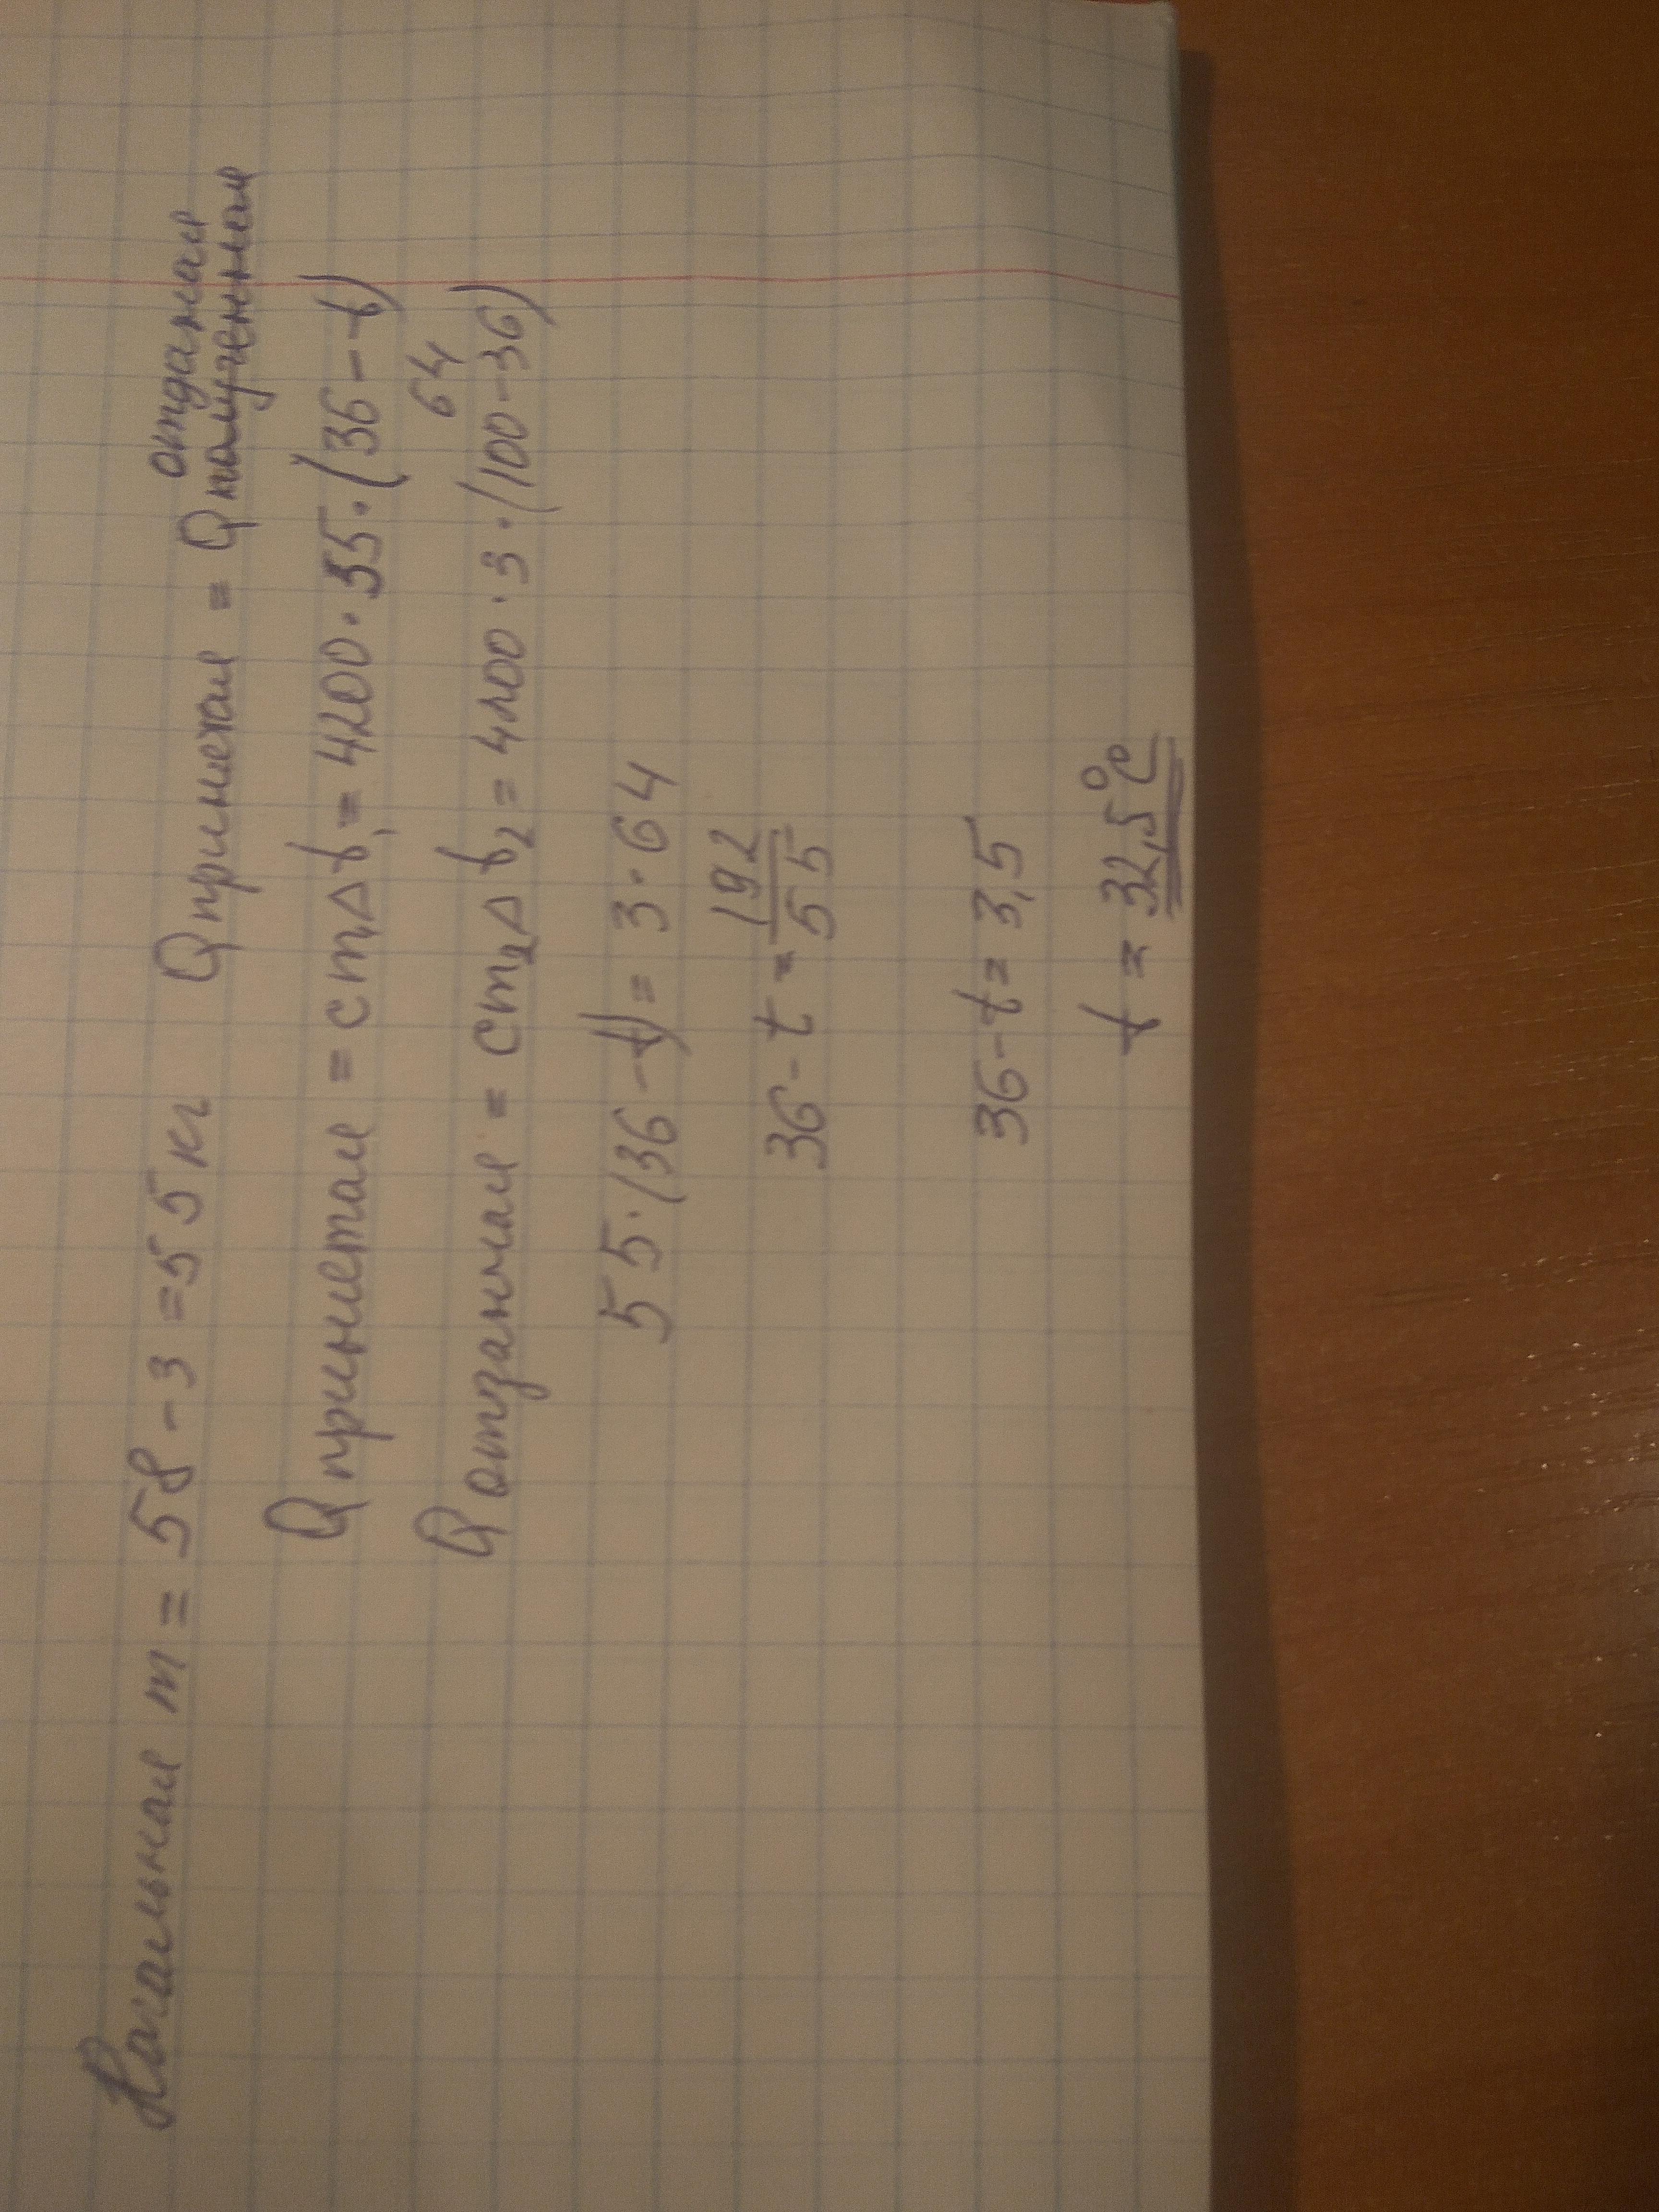 Начальная m = 58 - 3 = 55 кг Qпринятая = Qполученная отданная
Qпринетая = cm₁Δt₁ = 4200 · 55 · (36 - t)
Qотданная = cm₂Δt₂ = 4200 · 3 · (100 - 36) 64
55 · (36 - t) = 3 · 64
36 - t = 192/55
36 - t = 3,5
t = 32,5 °C